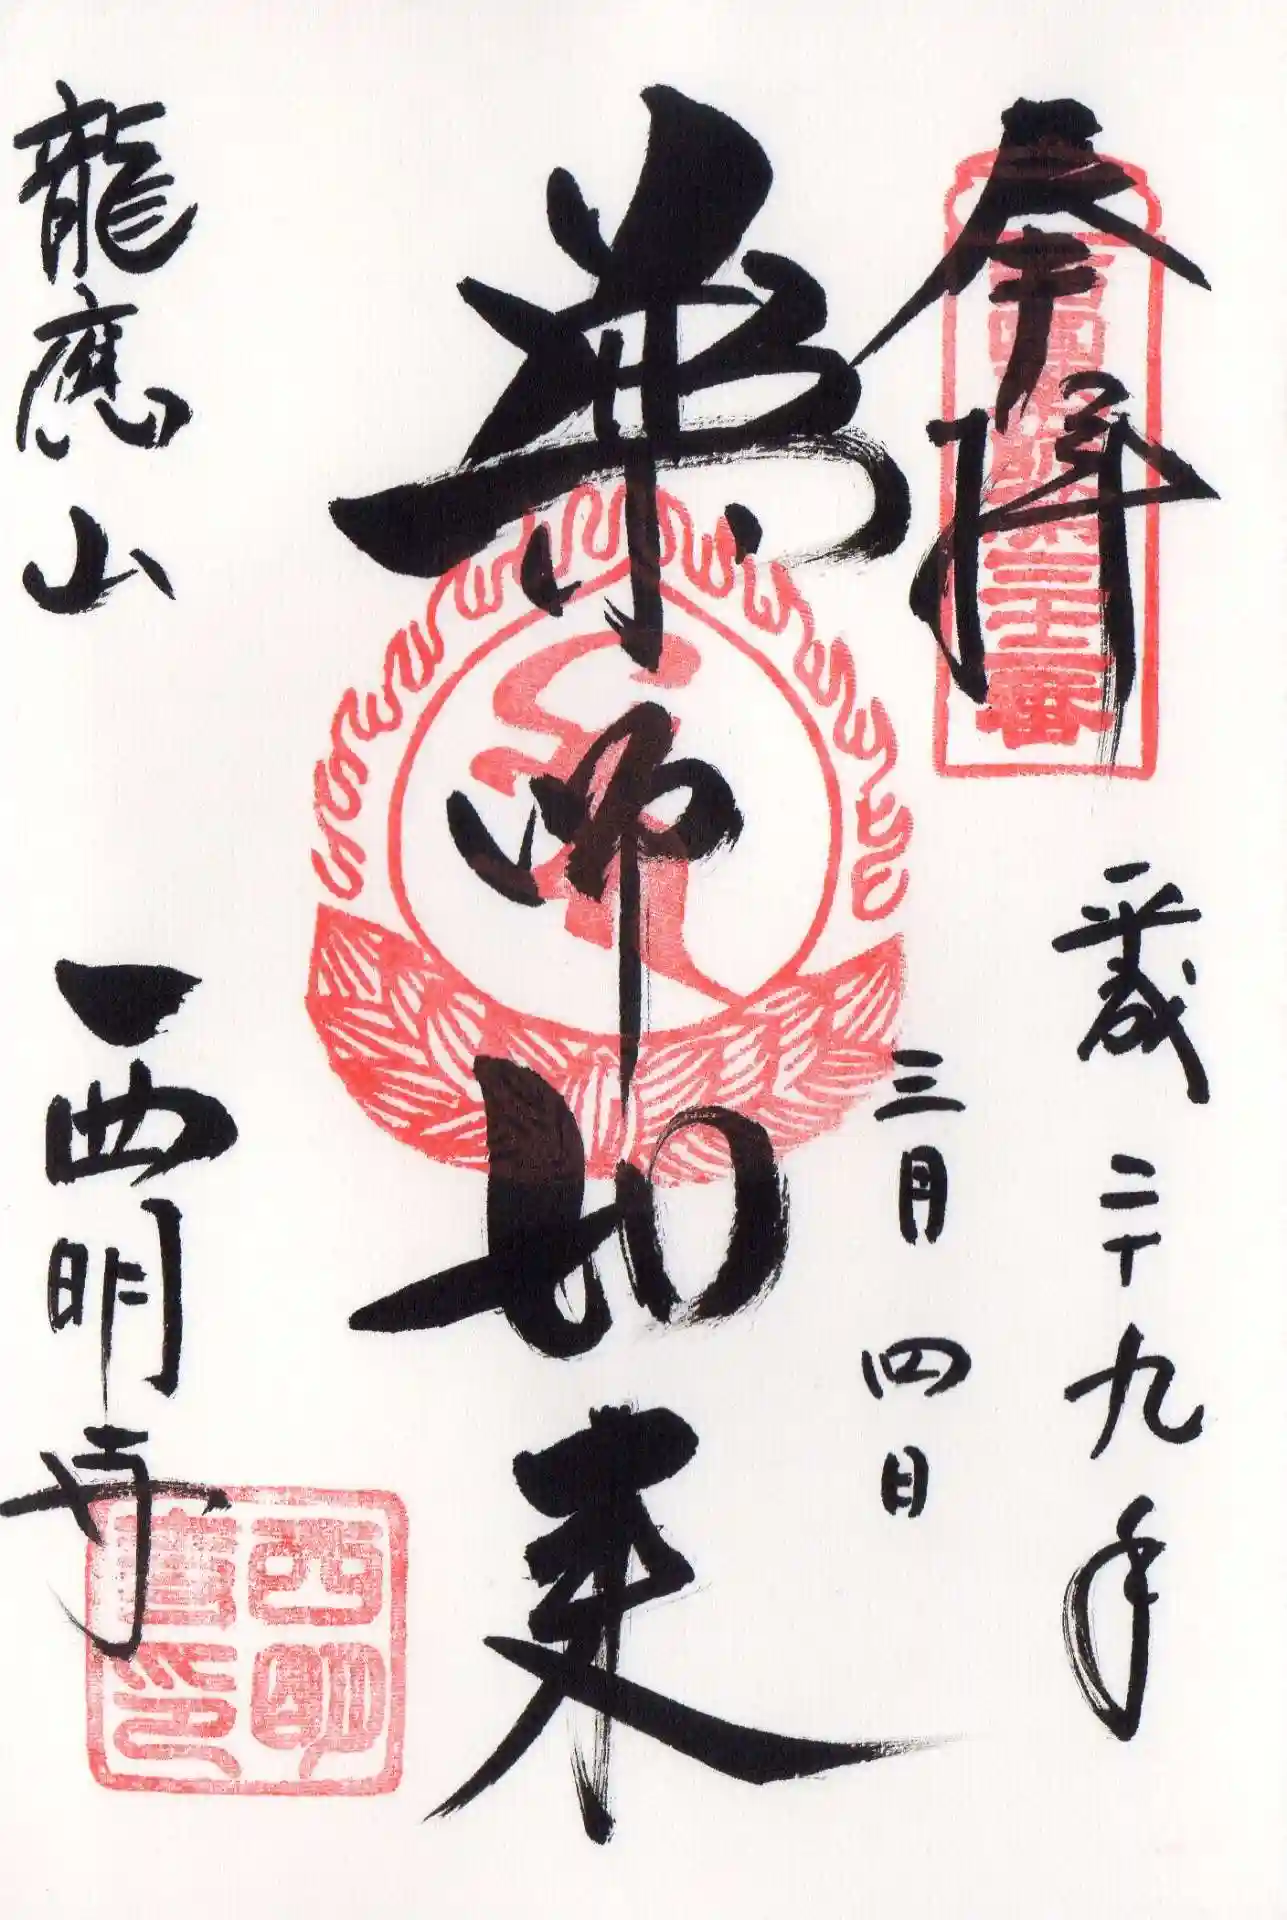 奉拝
平成二十九年
三月四日
薬師如来
龍應山 西明寺
西明寺印